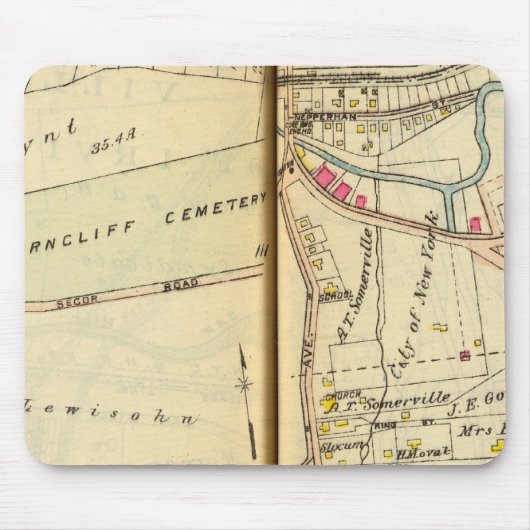 ynt
35.4A
RNCLIFF CEMETERY
SECOR ROAD
Lewisohn
NEPPERHAN ST.
AVE.
SCHOOL
A.T. Somerville
City of New York
CHURCH
A.T. Somerville
J.E. Go
KING ST.
Mrs
Slocum
H. Moval